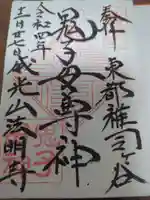 奉拝
東都雑司ヶ谷
鬼子母尊神
令和四年
十二月廿七日
威光山法明寺